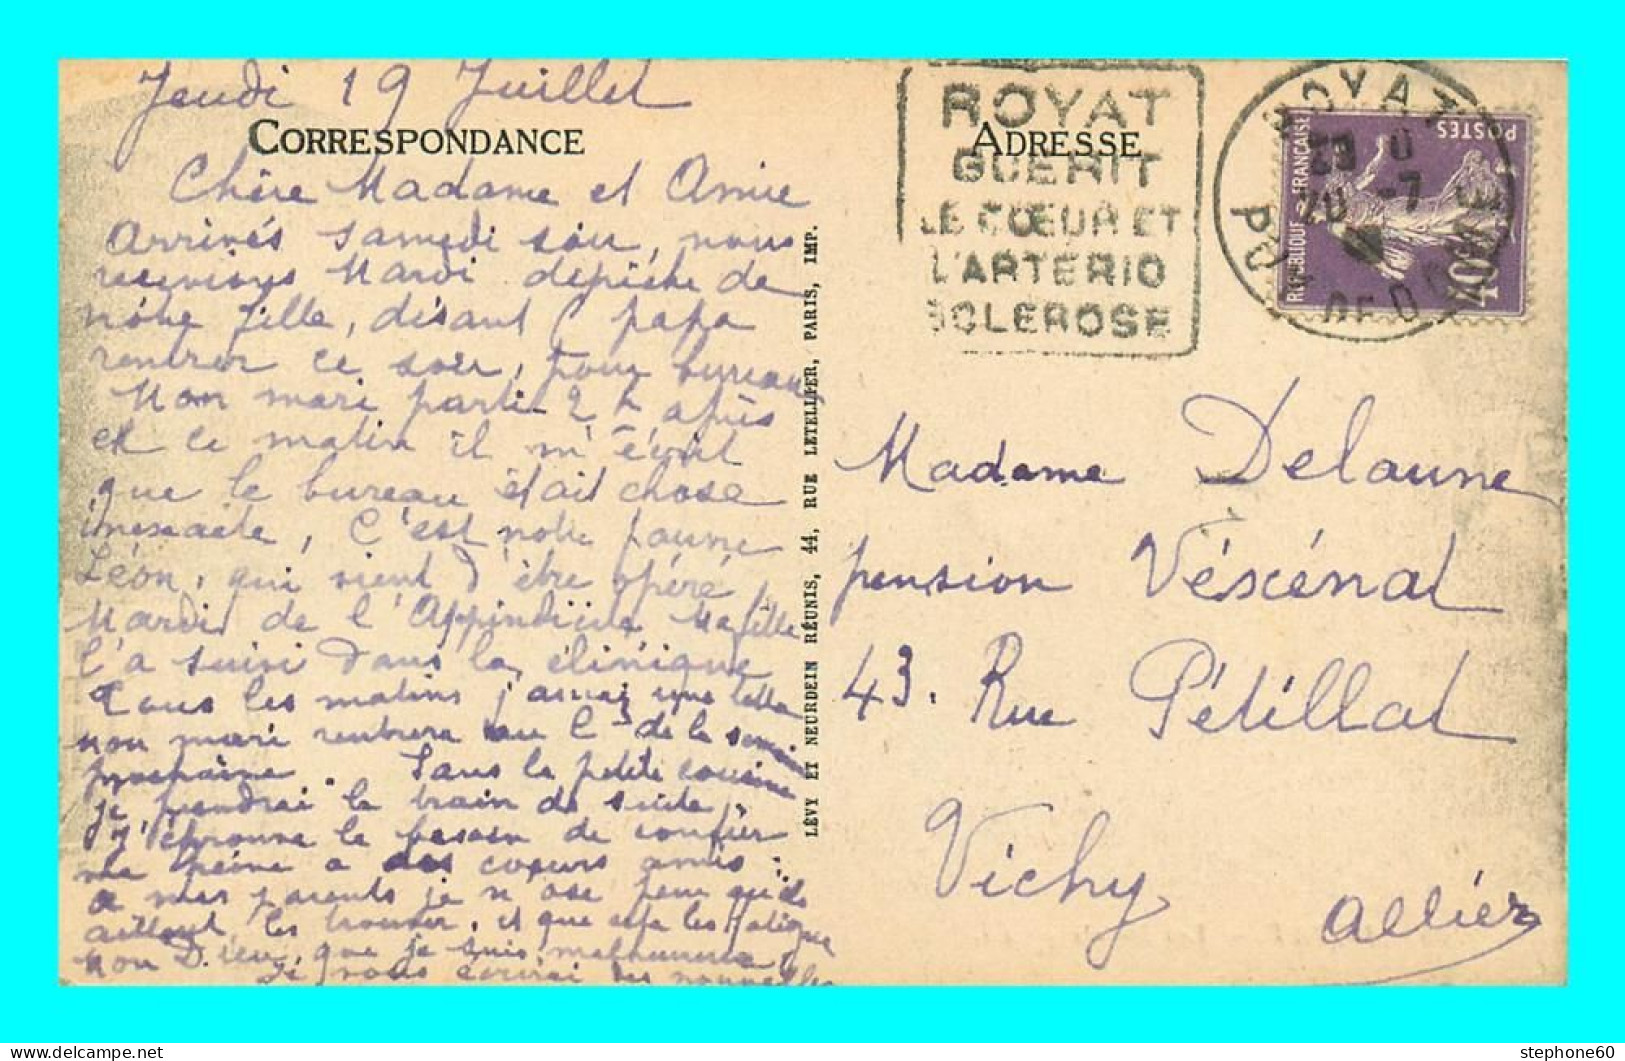 Jeudi 19 Juillet
CORRESPONDANCE
Chère Madame et Amie
Arrivés samedi soir, nous
recevions Mardi depêche de
nôtre fille, disant papa
rentrer ce soir, pour bureau,
Mon mari parti 2 h après
et ce matin il m'écrit
que le bureau était chose
inexacte, C'est notre pauvre
Léon, qui vient d'être opéré
Mardi de l'Appindicite Ma fille
l'a suivi dans la clinique
Tous les matins j'aurai une lettre
mon mari rentrera au de la semaine
prochaine. Sans la petite cousine
je prendrai le train de suite,
J'éprouve le besoin de confier
ma peine a des coeurs amis :
a mes parents je n'ose peur qu'ils
aillent les trouver, et que cela les fatigue
Mon Dieu, que je suis malheureuse
Je vous écrirai des nouvelles
LÉVY ET NEURDEIN RÉUNIS, 44, RUE LETELLIER, PARIS, IMP.
ADRESSE
ROYAT
GUERIT
LE CŒUR ET
L'ARTERIO
SCLEROSE
ROYAT
20 -7
PUY DE DOME
REPUBLIQUE FRANÇAISE
POSTES
40c
Madame Delaune
pension Véxénat
43. Rue Pétillat
Vichy
Allier
stephone60